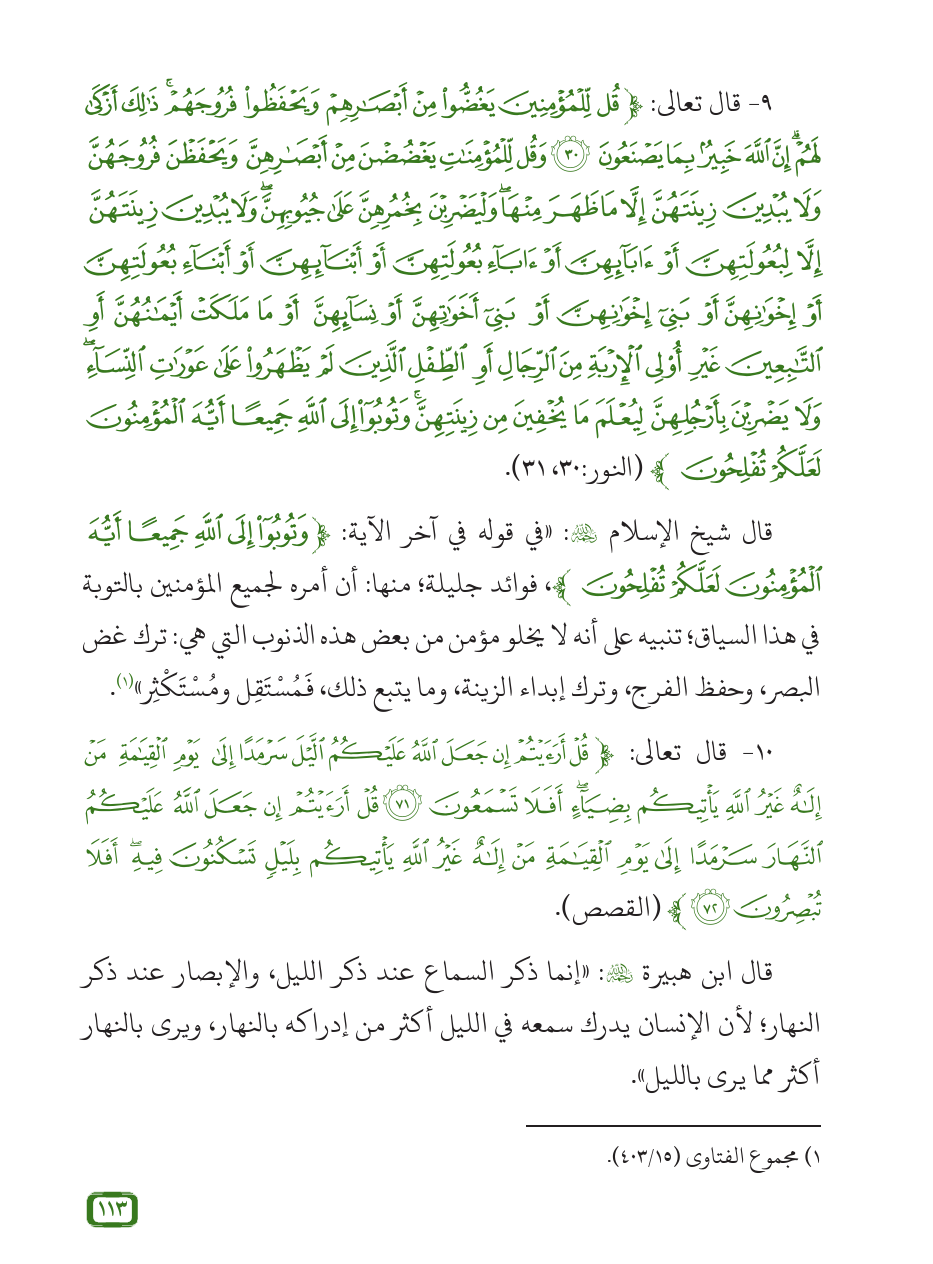 ٩- قال تعالى: ﴿ قُل لِّلْمُؤْمِنِينَ يَغُضُّوا۟ مِنْ أَبْصَـٰرِهِمْ وَيَحْفَظُوا۟ فُرُوجَهُمْ ۚ ذَٰلِكَ أَزْكَىٰ
لَهُمْ ۗ إِنَّ ٱللَّهَ خَبِيرٌۢ بِمَا يَصْنَعُونَ ۝٣٠ وَقُل لِّلْمُؤْمِنَـٰتِ يَغْضُضْنَ مِنْ أَبْصَـٰرِهِنَّ وَيَحْفَظْنَ فُرُوجَهُنَّ
وَلَا يُبْدِينَ زِينَتَهُنَّ إِلَّا مَا ظَهَرَ مِنْهَا ۖ وَلْيَضْرِبْنَ بِخُمُرِهِنَّ عَلَىٰ جُيُوبِهِنَّ ۖ وَلَا يُبْدِينَ زِينَتَهُنَّ
إِلَّا لِبُعُولَتِهِنَّ أَوْ ءَابَآئِهِنَّ أَوْ ءَابَآءِ بُعُولَتِهِنَّ أَوْ أَبْنَآئِهِنَّ أَوْ أَبْنَآءِ بُعُولَتِهِنَّ
أَوْ إِخْوَٰنِهِنَّ أَوْ بَنِىٓ إِخْوَٰنِهِنَّ أَوْ بَنِىٓ أَخَوَٰتِهِنَّ أَوْ نِسَآئِهِنَّ أَوْ مَا مَلَكَتْ أَيْمَـٰنُهُنَّ أَوِ
ٱلتَّـٰبِعِينَ غَيْرِ أُو۟لِى ٱلْإِرْبَةِ مِنَ ٱلرِّجَالِ أَوِ ٱلطِّفْلِ ٱلَّذِينَ لَمْ يَظْهَرُوا۟ عَلَىٰ عَوْرَٰتِ ٱلنِّسَآءِ ۖ
وَلَا يَضْرِبْنَ بِأَرْجُلِهِنَّ لِيُعْلَمَ مَا يُخْفِينَ مِن زِينَتِهِنَّ ۚ وَتُوبُوٓا۟ إِلَى ٱللَّهِ جَمِيعًا أَيُّهَ ٱلْمُؤْمِنُونَ
لَعَلَّكُمْ تُفْلِحُونَ ﴾ (النور:٣٠، ٣١).
قال شيخ الإسلام ﵀: «في قوله في آخر الآية: ﴿ وَتُوبُوٓا۟ إِلَى ٱللَّهِ جَمِيعًا أَيُّهَ
ٱلْمُؤْمِنُونَ لَعَلَّكُمْ تُفْلِحُونَ ﴾، فوائد جليلة؛ منها: أن أمره لجميع المؤمنين بالتوبة
في هذا السياق؛ تنبيه على أنه لا يخلو مؤمن من بعض هذه الذنوب التي هي: ترك غض
البصر، وحفظ الفرج، وترك إبداء الزينة، وما يتبع ذلك، فَمُسْتَقِل ومُسْتَكْثِر»(١).
١٠- قال تعالى: ﴿ قُلْ أَرَءَيْتُمْ إِن جَعَلَ ٱللَّهُ عَلَيْكُمُ ٱلَّيْلَ سَرْمَدًا إِلَىٰ يَوْمِ ٱلْقِيَـٰمَةِ مَنْ
إِلَـٰهٌ غَيْرُ ٱللَّهِ يَأْتِيكُم بِضِيَآءٍ ۖ أَفَلَا تَسْمَعُونَ ۝٧١ قُلْ أَرَءَيْتُمْ إِن جَعَلَ ٱللَّهُ عَلَيْكُمُ
ٱلنَّهَارَ سَرْمَدًا إِلَىٰ يَوْمِ ٱلْقِيَـٰمَةِ مَنْ إِلَـٰهٌ غَيْرُ ٱللَّهِ يَأْتِيكُم بِلَيْلٍ تَسْكُنُونَ فِيهِ ۖ أَفَلَا
تُبْصِرُونَ ۝٧٢ ﴾ (القصص).
قال ابن هبيرة ﵀: «إنما ذكر السماع عند ذكر الليل، والإبصار عند ذكر
النهار؛ لأن الإنسان يدرك سمعه في الليل أكثر من إدراكه بالنهار، ويرى بالنهار
أكثر مما يرى بالليل».
١) مجموع الفتاوى (٤٠٣/١٥).
١١٣